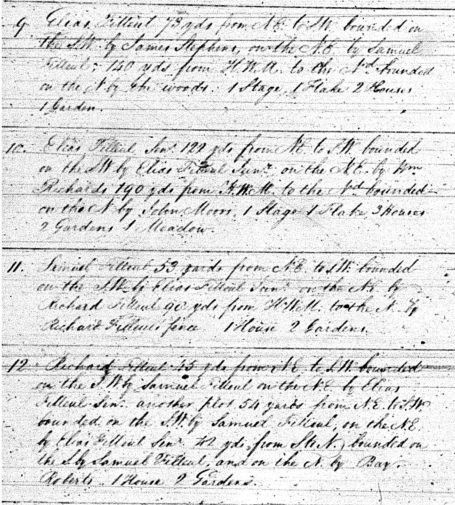 9. Elias Filleul 73 yds from N.E. to S.W. bounded on
the S.W. by James Stephens, on the N.E. by Samuel
Filleul; 140 yds. from H.W.M. to the Nd bounded
on the N. by the woods. 1 Stage 1 Flake 2 Houses
1 Garden.
10. Elias Filleul Senr. 122 yds from N.E. to S.W. bounded
on the S.W. by Elias Filleul Junr. on the N.E. by Wm
Richards 190 yds from H.W.M. to the Nd bounded
on the N. by John Moors, 1 Stage 1 Flake 3 Houses
2 Gardens 1 Meadow.
11. Samuel Filleul 53 yards from N.E. to S.W. bounded
on the S.W. by Elias Filleul Senr. on the N.E. by
Richard Filleul 90 yds from H.W.M. to the N. by
Richard Filleuls fence 1 House 2 Gardens.
12. Richard Filleul 45 yds from N.E. to S.W. bounded
on the S.W. by Samuel Filleul on the N.E. by Elias
Filleul Senr. another plot 54 yards from N.E. to S.W.
bounded on the S.W. by Samuel Filleul, on the N.E.
by Elias Filleul Senr. 42 yds. from S to N. bounded on
the S. by Samuel Filleul, and on the N. by Bay
Roberts. 1 House 2 Gardens.